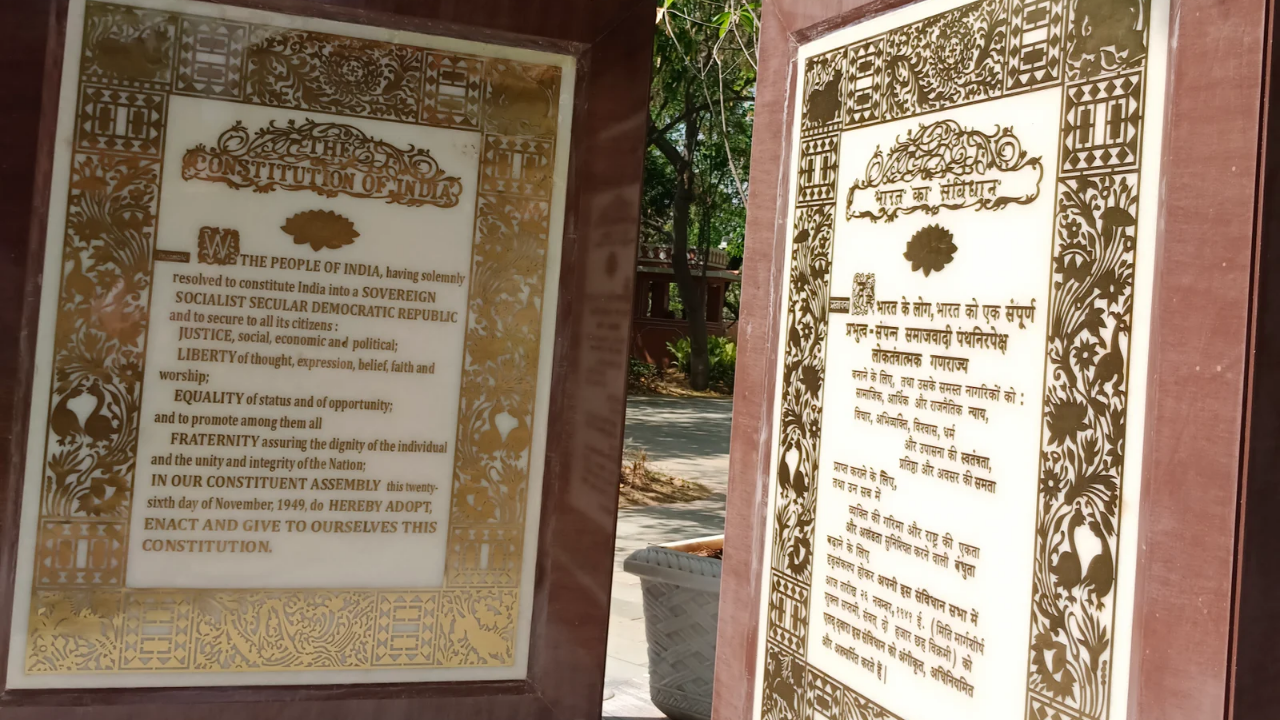 THE
CONSTITUTION OF INDIA
WE THE PEOPLE OF INDIA, having solemnly
resolved to constitute India into a SOVEREIGN
SOCIALIST SECULAR DEMOCRATIC REPUBLIC
and to secure to all its citizens :
JUSTICE, social, economic and political;
LIBERTY of thought, expression, belief, faith and
worship;
EQUALITY of status and of opportunity;
and to promote among them all
FRATERNITY assuring the dignity of the individual
and the unity and integrity of the Nation;
IN OUR CONSTITUENT ASSEMBLY this twenty-
sixth day of November, 1949, do HEREBY ADOPT,
ENACT AND GIVE TO OURSELVES THIS
CONSTITUTION.
भारत का संविधान
हम भारत के लोग, भारत को एक संपूर्ण
प्रभुत्व-संपन्न समाजवादी पंथनिरपेक्ष
लोकतंत्रात्मक गणराज्य
बनाने के लिए, तथा उसके समस्त नागरिकों को :
सामाजिक, आर्थिक और राजनैतिक न्याय,
विचार, अभिव्यक्ति, विश्वास, धर्म
और उपासना की स्वतंत्रता,
प्रतिष्ठा और अवसर की समता
प्राप्त कराने के लिए,
तथा उन सब में
व्यक्ति की गरिमा और राष्ट्र की एकता
और अखंडता सुनिश्चित करने वाली बंधुता
बढ़ाने के लिए
दृढ़संकल्प होकर अपनी इस संविधान सभा में
आज तारीख २६ नवम्बर, १९४९ ई. (मिति मार्गशीर्ष
शुक्ला सप्तमी, संवत् दो हजार छह विक्रमी) को
एतद् द्वारा इस संविधान को अंगीकृत, अधिनियमित
और आत्मार्पित करते हैं|